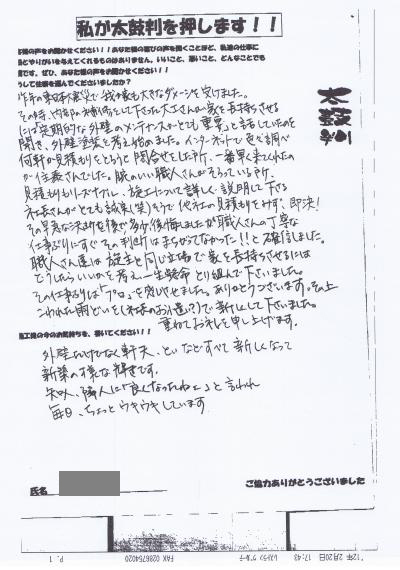 私が太鼓判を押します！！
様の声をお聞かせください！！あなた様の喜びの声を聞くことほど、私達の仕事に
とやりがいを与えてくれるものはありません。いいこと、悪いこと、どんなことでも
です。ぜひ、あなた様の声をお聞かせください！！
して仕事を選んでくださいましたか？
太鼓判
昨年の東日本大震災で我が家も大きなダメージを受けました。
その時、内部の
して下さった大工さんが家を長持ちさせる
には「定期的な外壁のメンテナンスがとても重要」と話していたのを
聞き、外壁塗装を考え始めました。インターネットで色々調べ
何軒か見積もりをとろうと問合せをした所、一番早く来てくれたの
が
さんでした。腕のいい職人さんがそろっている所、
見積もりもリーズナブル、施工について詳しく説明して下さる
社長さんがとても誠実(笑)そうで他社の見積もりをみず、即決！
その早急な決断を後で多少後悔しましたが職人さんの丁寧な
仕事ぶりにすぐその判断はまちがってなかった！！と確信しました。
職人さん達は施主と同じ立場で家を長持ちさせるには
どうしたらいいかを考え一生懸命とり組んで下さいました。
その仕事ぶりは「プロ」を感じさせました。ありがとうございます。その上
こわれた雨どいを(社長のお心遣い？)で新しくして下さいました。
重ねてお礼を申し上げます。
工後の今のお気持ちを、書いてください！！
外壁だけでなく軒天、といなどすべて新しくなって
新築の様な輝きです。
知人、隣人に「良くなったねェ」と言われ
毎日、ちょっとウキウキしています。
氏名
ご協力ありがとうございました
'12年 2月20日 17:43
FAX 0286754020
P. 1